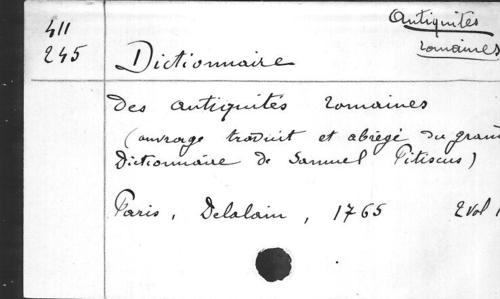 Antiquités
romaines
411
245
Dictionnaire
des antiquités romaines
(ouvrage traduit et abrégé du grand
Dictionnaire de Samuel Pitiscus)
Paris, Delalain, 1765 2 vol